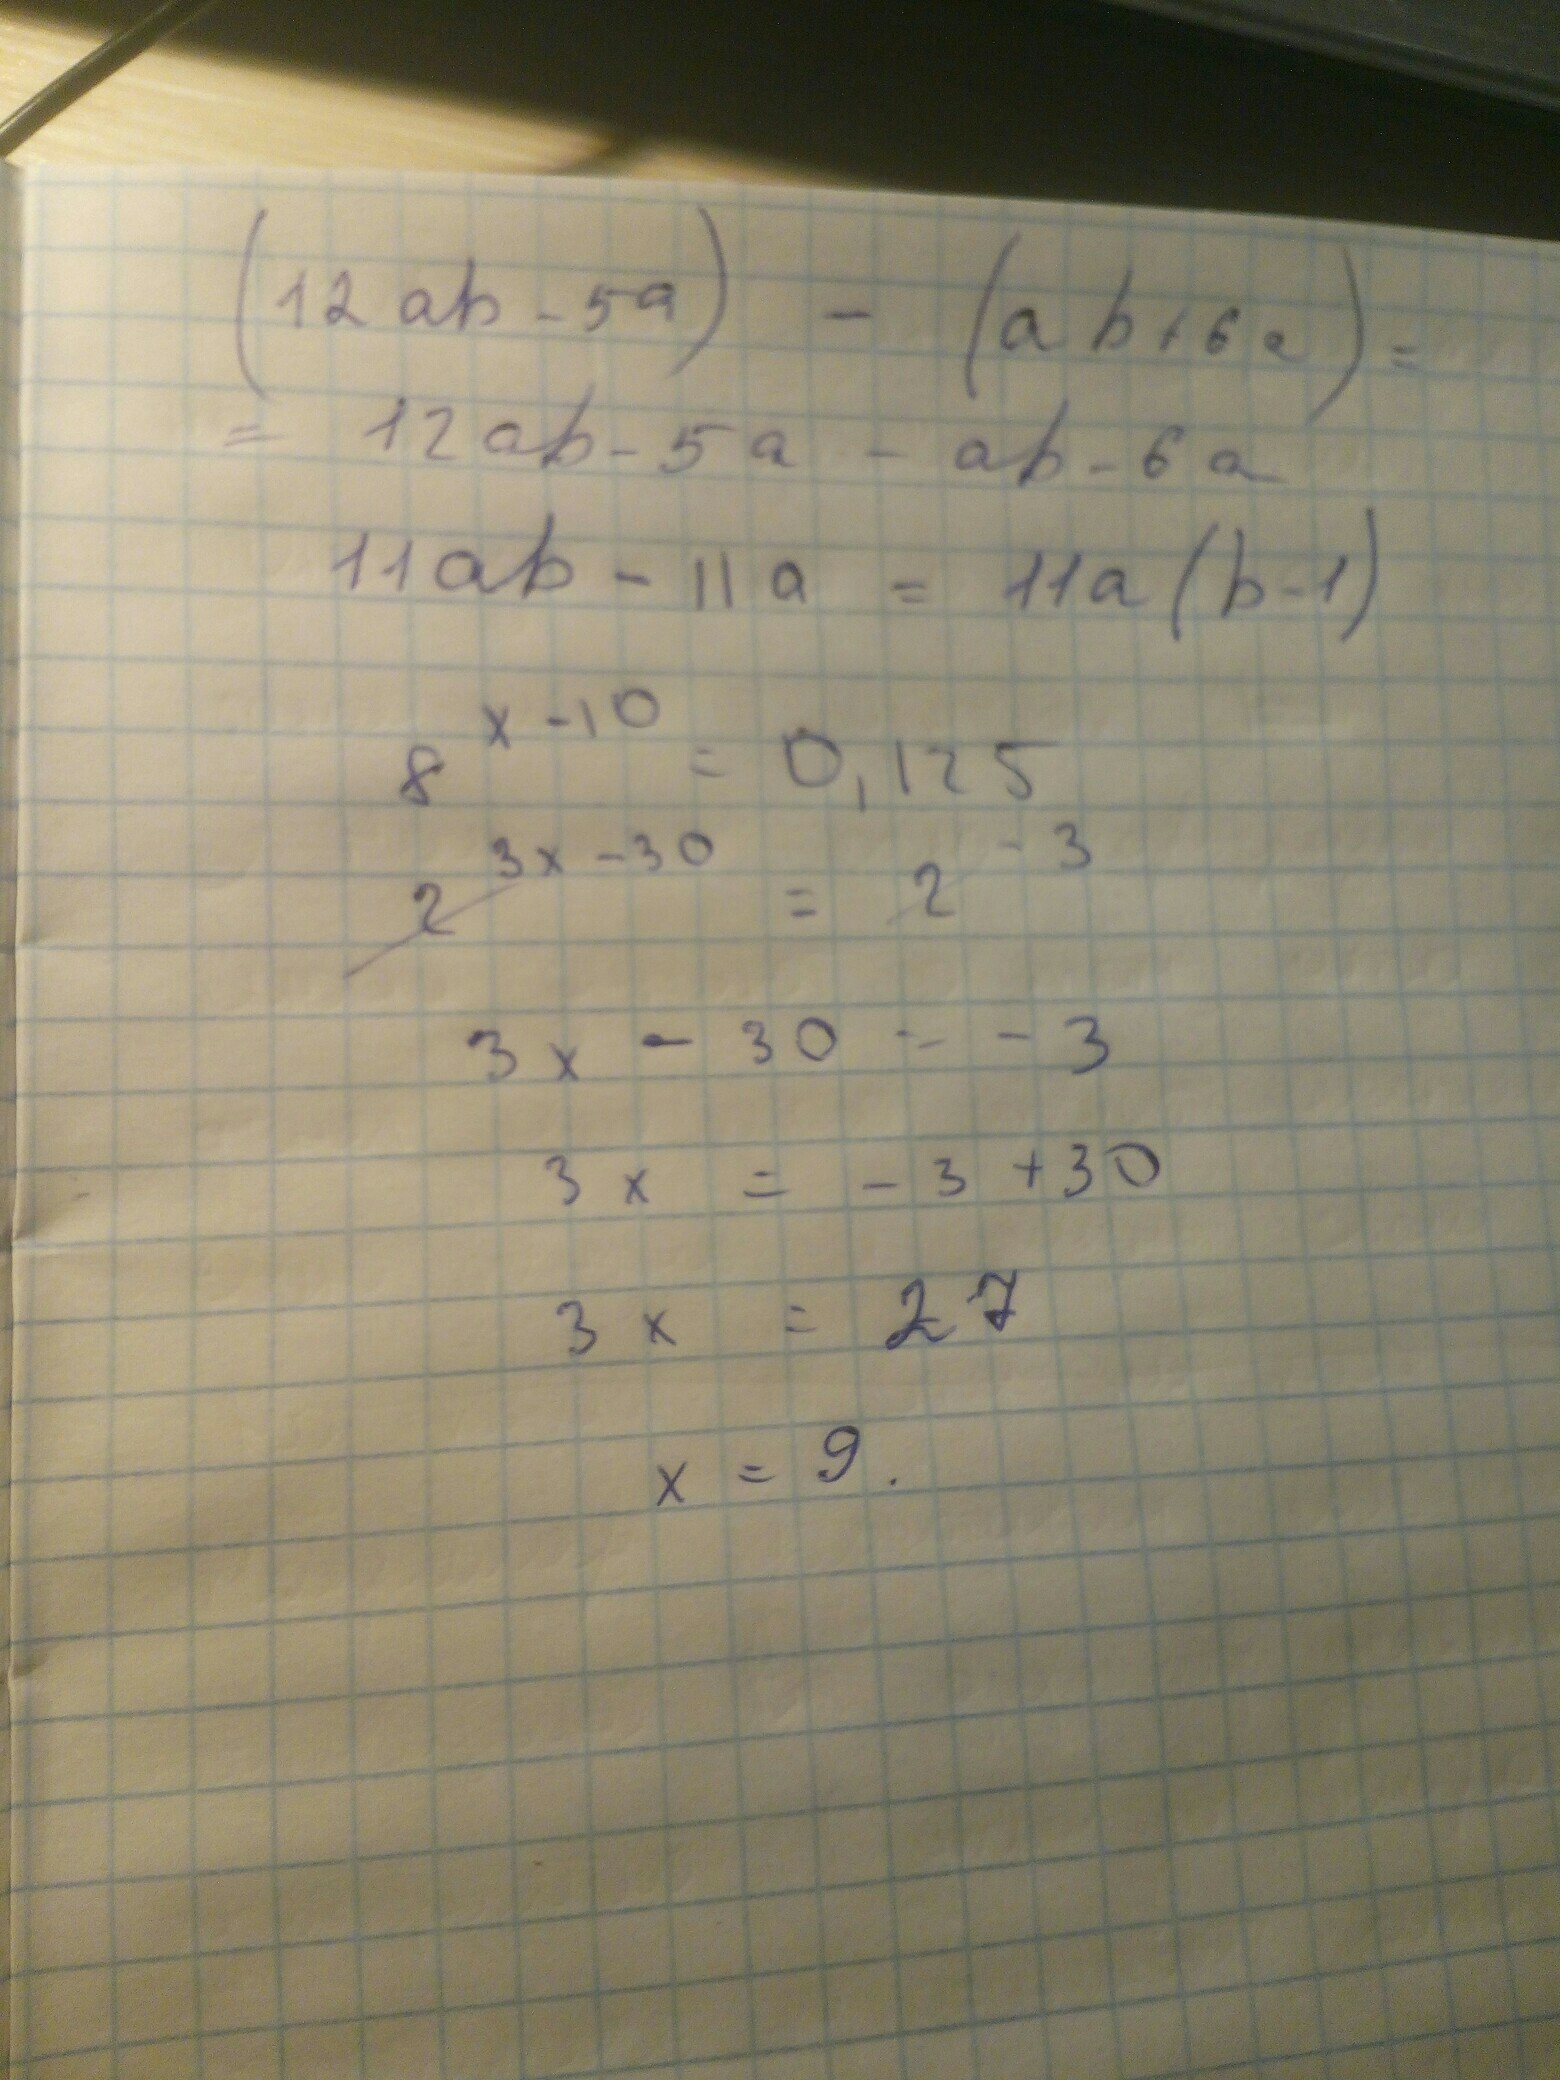 (12ab - 5a) - (ab + 6a) =
= 12ab - 5a - ab - 6a
11ab - 11a = 11a(b - 1)
8^{x - 10} = 0,125
2^{3x - 30} = 2^{-3}
3x - 30 = -3
3x = -3 + 30
3x = 27
x = 9.